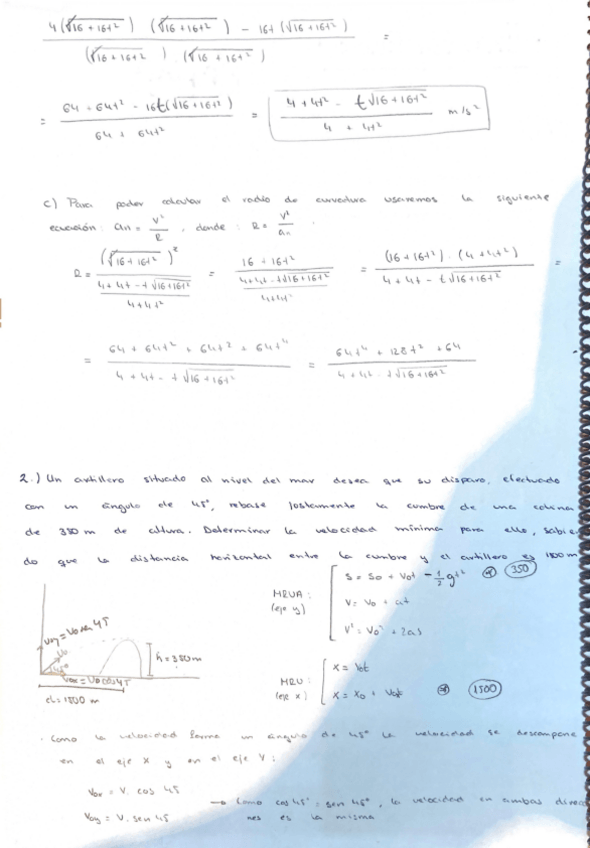 4(√16+16t²) (√16+16t²) - 16t(√16+16t²) =
(√16+16t²) (√16+16t²)
= 64+64t² - 16t(√16+16t²) = 4+4t² - t√16+16t² m/s²
64+64t² 4+4t²
c) Para poder calcular el radio de curvadura usaremos la siguiente
ecuación: an = V²/R, donde: R = V²/an.
R = (√16+16t²)² = 16+16t² = (16+16t²)·(4+4t²) =
4+4t - t√16+16t² 4+4t - t√16+16t² 4+4t - t√16+16t²
4+4t² 4+4t²
= 64+64t²+64t²+64t⁴ = 64t⁴+128t²+64
4+4t - t√16+16t² 4+4t - t√16+16t²
2.) Un artillero situado al nivel del mar desea que su disparo, efectuado
con un ángulo de 45°, rebase justamente la cumbre de una colina
de 350 m de altura. Determinar la velocidad mínima para ello, sabien
do que la distancia horizontal entre la cumbre y el artillero es 1500 m
MRUA: S = S₀ + V₀t - 1/2 gt² 350
(eje y) V = V₀ + at
V² = V₀² + 2as
Voy = Vo sen 45
Vo
45°
Vox = Vo cos 45
h = 350 m
d = 1500 m
MRU: X = Vot
(eje x) X = X₀ + Vot 1500
· Como la velocidad forma un ángulo de 45° la velocidad se descompone
en el eje X y en el eje Y:
Vox = V. cos 45
Voy = V. sen 45
→ Como cos 45° = sen 45°, la velocidad en ambas direc
nes es la misma